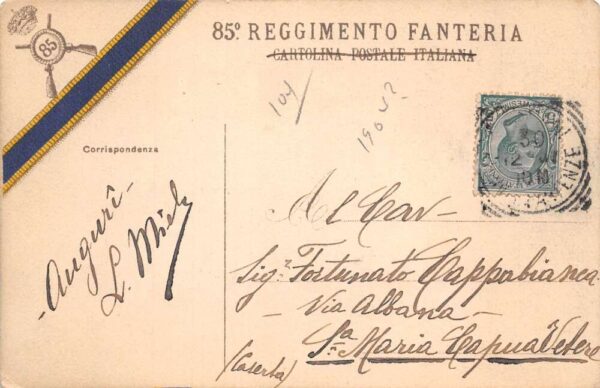 85
85º REGGIMENTO FANTERIA
CARTOLINA POSTALE ITALIANA
104
Corrispondenza
- Augurî -
L. Miele
Al Cav.
Sigr Fortunato Cappabianca
- Via Albana -
Sa Maria Capua Vetere
(Caserta)
FIRENZE